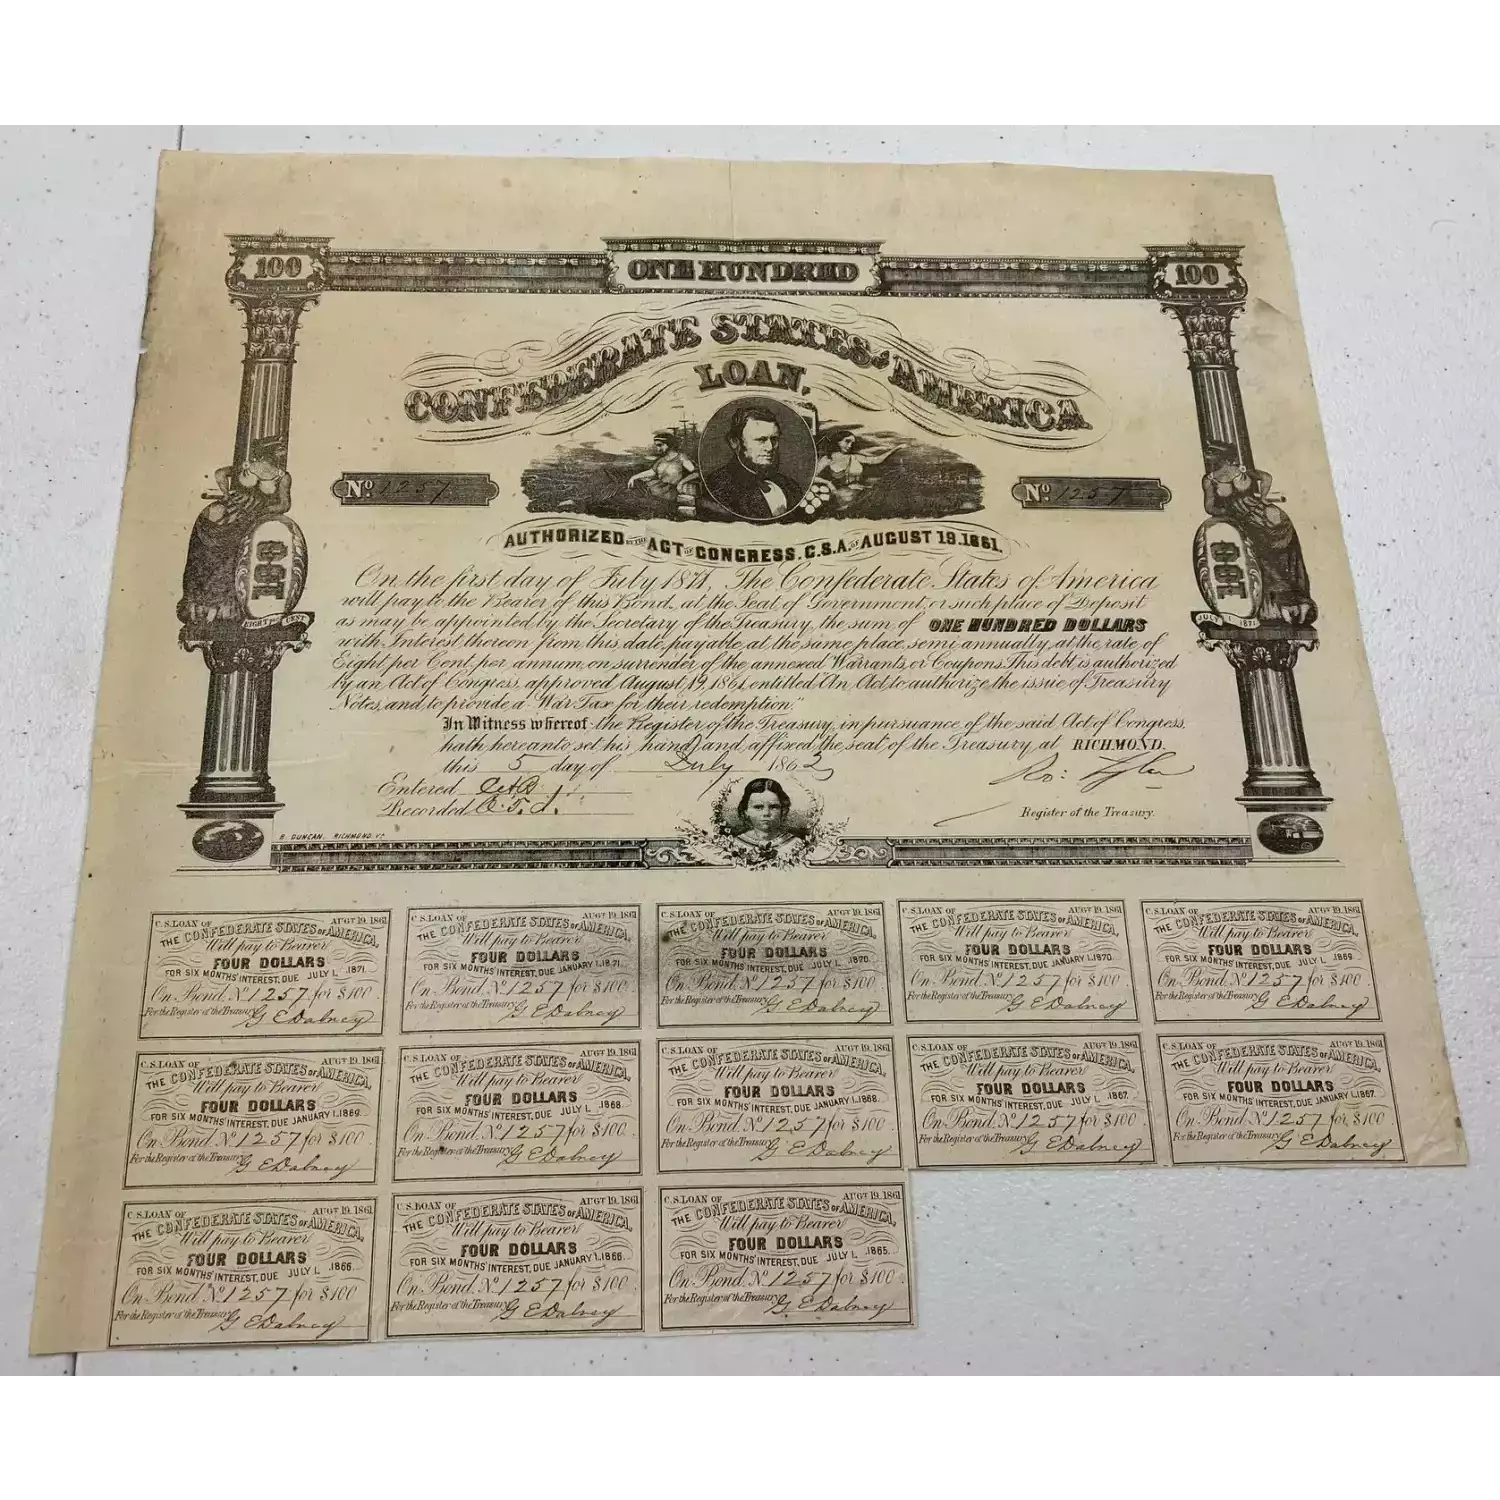 100 ONE HUNDRED 100
CONFEDERATE STATES OF AMERICA
LOAN.
No. 1257 No. 1257
AUTHORIZED BY THE ACT OF CONGRESS. C.S.A. OF AUGUST 19.1861.
On the first day of July 1871, The Confederate States of America
will pay to the Bearer of this Bond, at the Seat of Government, or such place of Deposit
as may be appointed by the Secretary of the Treasury, the sum of ONE HUNDRED DOLLARS
with Interest thereon from this date, payable at the same place, semi-annually, at the rate of
Eight per Cent. per annum, on surrender of the annexed Warrants, or Coupons. This debt is authorized
by an Act of Congress, approved August, 19, 1861, entitled "An Act, to authorize the issue of Treasury
Notes, and to provide a War Tax for their redemption."
In Witness whereof the Register of the Treasury, in pursuance of the said Act of Congress,
hath hereunto set his hand, and affixed the seal of the Treasury, at RICHMOND.
this 5 day of July 1862
Entered
Recorded
Ro: Tyler
Register of the Treasury.
100
EIGHT PER CENT
100
JULY 1, 1871
B. DUNCAN. RICHMOND. Va.
C.S. LOAN OF AUGT 19. 1861
THE CONFEDERATE STATES OF AMERICA,
Will pay to Bearer
FOUR DOLLARS
FOR SIX MONTHS' INTEREST, DUE JULY 1, 1871.
On Bond No. 1257 for $100.
For the Register of the Treasury G E Dabney
C.S. LOAN OF AUGT 19. 1861
THE CONFEDERATE STATES OF AMERICA,
Will pay to Bearer
FOUR DOLLARS
FOR SIX MONTHS' INTEREST, DUE JANUARY 1, 1871.
On Bond No. 1257 for $100.
For the Register of the Treasury G E Dabney
C.S. LOAN OF AUGT 19. 1861
THE CONFEDERATE STATES OF AMERICA,
Will pay to Bearer
FOUR DOLLARS
FOR SIX MONTHS' INTEREST, DUE JULY 1, 1870.
On Bond No. 1257 for $100.
For the Register of the Treasury G E Dabney
C.S. LOAN OF AUGT 19. 1861
THE CONFEDERATE STATES OF AMERICA,
Will pay to Bearer
FOUR DOLLARS
FOR SIX MONTHS' INTEREST, DUE JANUARY 1, 1870.
On Bond No. 1257 for $100.
For the Register of the Treasury G E Dabney
C.S. LOAN OF AUGT 19. 1861
THE CONFEDERATE STATES OF AMERICA,
Will pay to Bearer
FOUR DOLLARS
FOR SIX MONTHS' INTEREST, DUE JULY 1, 1869.
On Bond No. 1257 for $100.
For the Register of the Treasury G E Dabney
C.S. LOAN OF AUGT 19. 1861
THE CONFEDERATE STATES OF AMERICA,
Will pay to Bearer
FOUR DOLLARS
FOR SIX MONTHS' INTEREST, DUE JANUARY 1, 1869.
On Bond No. 1257 for $100.
For the Register of the Treasury G E Dabney
C.S. LOAN OF AUGT 19. 1861
THE CONFEDERATE STATES OF AMERICA,
Will pay to Bearer
FOUR DOLLARS
FOR SIX MONTHS' INTEREST, DUE JULY 1, 1868.
On Bond No. 1257 for $100.
For the Register of the Treasury G E Dabney
C.S. LOAN OF AUGT 19. 1861
THE CONFEDERATE STATES OF AMERICA,
Will pay to Bearer
FOUR DOLLARS
FOR SIX MONTHS' INTEREST, DUE JANUARY 1, 1868.
On Bond No. 1257 for $100.
For the Register of the Treasury G E Dabney
C.S. LOAN OF AUGT 19. 1861
THE CONFEDERATE STATES OF AMERICA,
Will pay to Bearer
FOUR DOLLARS
FOR SIX MONTHS' INTEREST, DUE JULY 1, 1867.
On Bond No. 1257 for $100.
For the Register of the Treasury G E Dabney
C.S. LOAN OF AUGT 19. 1861
THE CONFEDERATE STATES OF AMERICA,
Will pay to Bearer
FOUR DOLLARS
FOR SIX MONTHS' INTEREST, DUE JANUARY 1, 1867.
On Bond No. 1257 for $100.
For the Register of the Treasury G E Dabney
C.S. LOAN OF AUGT 19. 1861
THE CONFEDERATE STATES OF AMERICA,
Will pay to Bearer
FOUR DOLLARS
FOR SIX MONTHS' INTEREST, DUE JULY 1, 1866.
On Bond No. 1257 for $100
For the Register of the Treasury G E Dabney
C.S. LOAN OF AUGT 19. 1861
THE CONFEDERATE STATES OF AMERICA,
Will pay to Bearer
FOUR DOLLARS
FOR SIX MONTHS' INTEREST, DUE JANUARY 1, 1866.
On Bond No. 1257 for $100.
For the Register of the Treasury G E Dabney
C.S. LOAN OF AUGT 19. 1861
THE CONFEDERATE STATES OF AMERICA,
Will pay to Bearer
FOUR DOLLARS
FOR SIX MONTHS' INTEREST, DUE JULY 1, 1865.
On Bond No. 1257 for $100.
For the Register of the Treasury G E Dabney